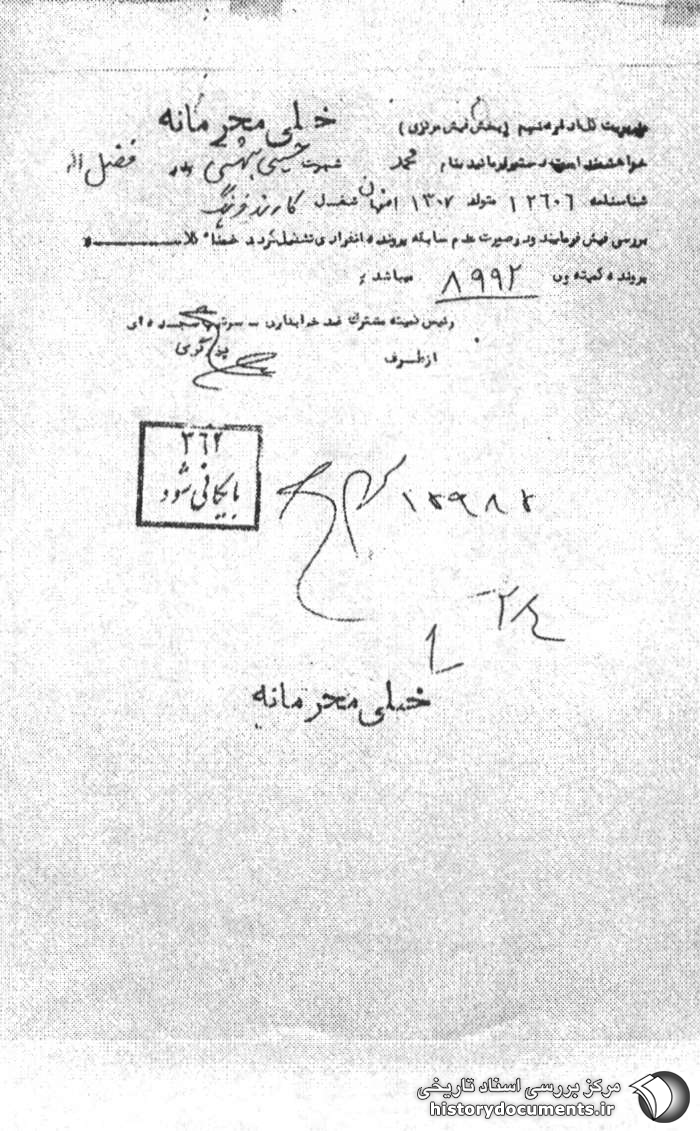 خیلی محرمانه
مدیریت کل اداره سوم (بخش فیش مرکزی)
خواهشمند است دستور فرمائید بنام محمد شهرت حسینی بهشتی پدر فضل اله
شناسنامه ۱۲۶۰۶ متولد ۱۳۰۷ اصفهان شغل کارمند فرهنگ
بررسی فیش فرمایند و در صورت عدم سابقه پرونده انفرادی تشکیل گردد ضمناً کلا
پرونده کمیته وی ۸۹۹۲ میباشد
رئیس کمیته مشترک ضد خرابکاری - سرتیپ سجده ای
از طرف
۳۶۲
بایگانی شود
خیلی محرمانه
مرکز بررسی اسناد تاریخی
historydocuments.ir